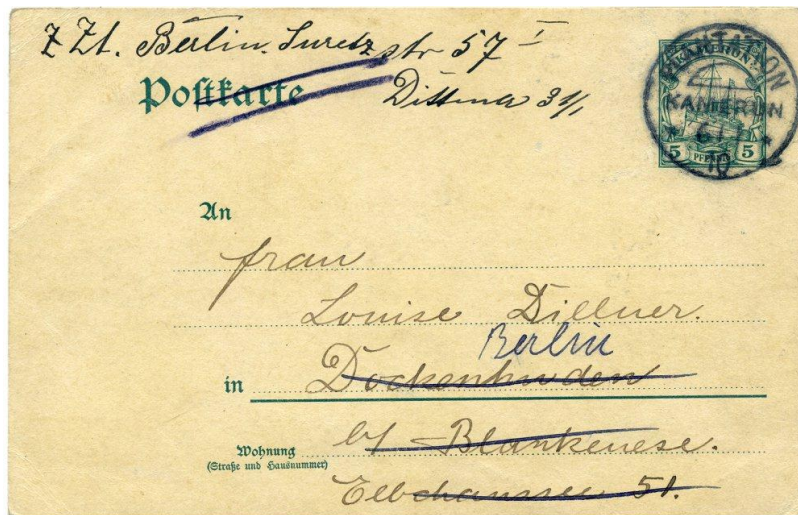 z Zt. Berlin. Suretzstr 57 I
Postkarte Dittmer 31/1
KAMERUN
STATION
KAMERUN
6/1
10
5 PFENNIG 5
An
Frau
Louise Dillner.
Berlin
in Dockenhuden
b/ Blankenese.
Wohnung
(Straße und Hausnummer)
Elbchaussee 51.